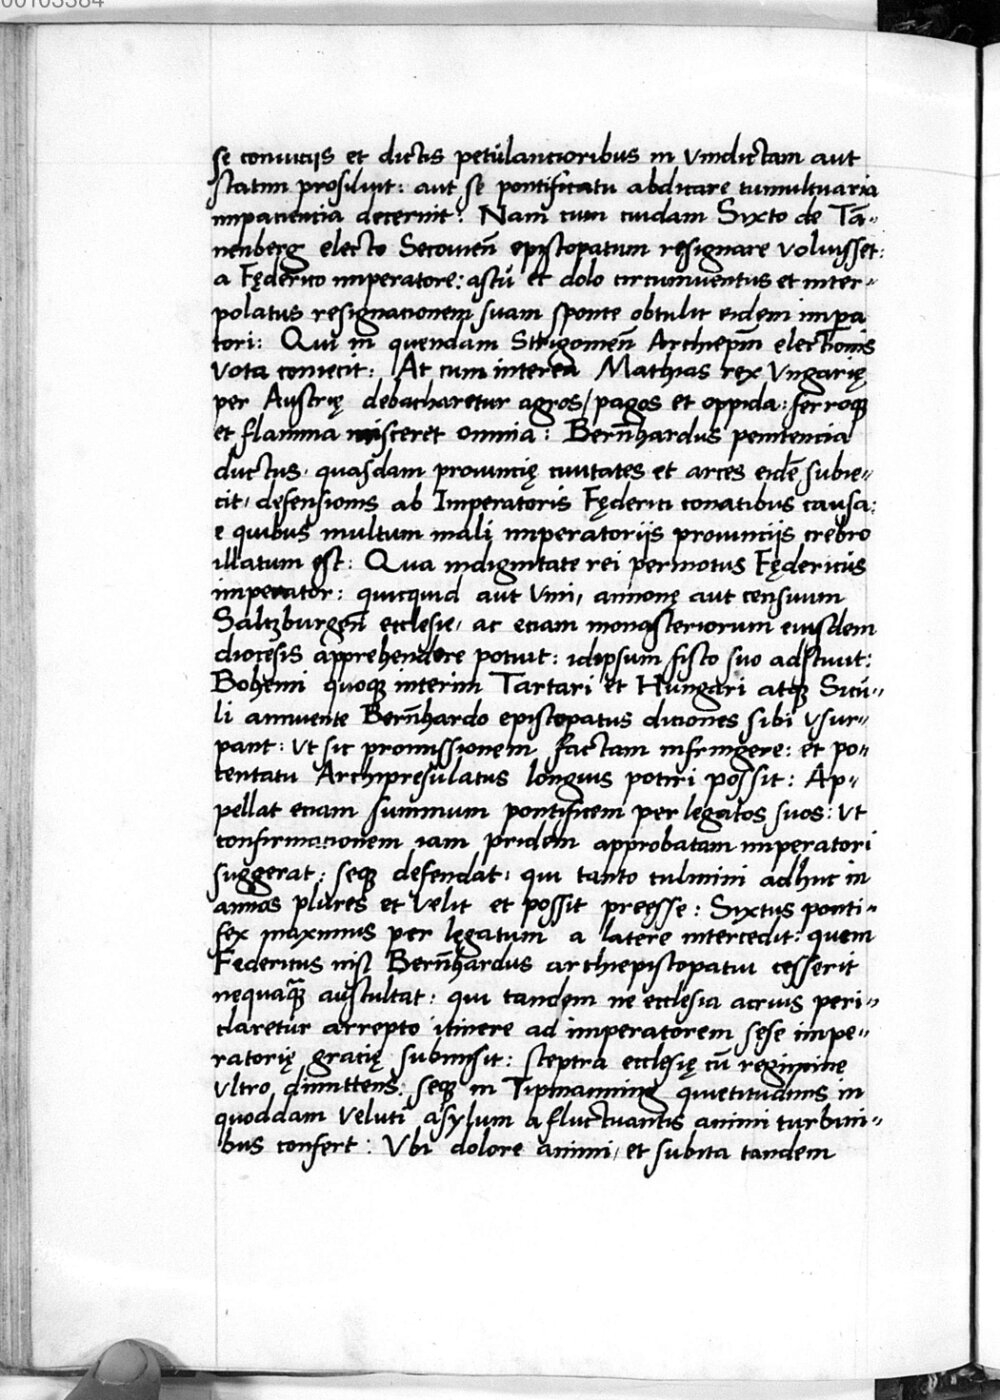 00103384
se conuicijs et dictis petulancioribus in vindictam aut
statim prosiluit: aut se pontificatu abdicare tumultuaria
impaciencia decernit: Nam cum cuidam Sixto de Tā-
nenberg electo Secouien̄ episcopatum resignare voluisset:
a Fęderico imperatore: astu et dolo circumuentus et inter-
polatus resignacionem suam sponte obtulit eidem impa
tori: Qui in quendam Strigomen̄ Archiepm̄ electionis
vota coniecit: At cum interea Mathias rex Vngarię
per Austrię debacharetur agros/ pagos et oppida: ferroq;
et flamma misceret omnia: Bern̄hardus penitencia
ductus. quasdam prouincię ciuitates et arces eidē subie-
cit, defensionis ab Imperatoris Fęderici conatibus causa:
e quibus multum mali imperatorijs prouincijs crebro
illatum est: Qua indignitate rei permotus Fędericus
imperator: quicquid aut vini, annonę aut censuum
Saltzburgen̄ ecclesie, ac eciam monasteriorum eiusdem
diocesis apprehendere potuit: idipsum fisco suo adsciuit:
Bohemi quoq; interim Tartari et Hungari atq; Sicu-
li annuente Bern̄hardo episcopatus diciones sibi vsur-
pant: vt sic promissionem factam infringere: et po-
tentatu Archipresulatus longius potiri possit: Ap-
pellat eciam summum pontificem per legatos suos: vt
confirmacionem iam pridem approbatam imperatori
suggerat: seq; defendat: qui tanto culmini adhuc in
annos plures et velit et possit preesse: Sixtus ponti-
fex maximus per lęgatum a latere intercedit: quem
Federicus nisi Bern̄hardus archiepiscopatui cesserit
nequaq̄ auscultat: qui tandem ne ecclesia acrius peri-
claretur arrepto itinere ad imperatorem sese impe-
ratorię gracię submisit: sceptra ecclesię cū regimine
vltro dimittens: seq; in Titmaning quietitudinis in
quoddam veluti asylum a fluctuantis animi turbini-
bus confert: Vbi dolore animi, et subita tandem